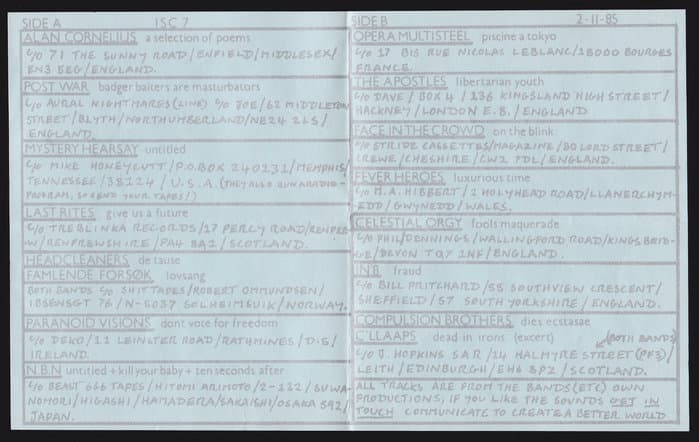 SIDE A ISC 7
ALAN CORNELIUS a selection of poems
C/O 71 THE SUNNY ROAD/ENFIELD/MIDDLESEX/
EN3 5EG/ENGLAND.
POST WAR badger baiters are masturbators
C/O AURAL NIGHTMARES (ZINE) C/O JOE/62 MIDDLETON
STREET/BLYTH/NORTHUMBERLAND/NE24 2LS/
ENGLAND.
MYSTERY HEARSAY untitled
C/O MIKE HONEYCUTT/P.O.BOX 240131/MEMPHIS/
TENNESSEE/38124/U.S.A. (THEY ALSO RUN A RADIO-
PROGRAM, SO SEND YOUR TAPES!)
LAST RITES give us a future
C/O TREBLINKA RECORDS/17 PERCY ROAD/RENFRE-
W/RENFREWSHIRE/PA4 8A2/SCOTLAND.
HEADCLEANERS de tause
FAMLENDE FORSØK lovsang
BOTH BANDS C/O SHIT TAPES/ROBERT OMMUNDSEN/
IBSENSGT 76/N-5037 SOLHEIMSVIK/NORWAY.
PARANOID VISIONS dont vote for freedom
C/O DEKO/11 LEINSTER ROAD/RATHMINES/D.6/
IRELAND.
N.B.N untitled + kill your baby + ten seconds after
C/O BEAST 666 TAPES/HITOMI ARIMOTO/2-232/SUWA-
NOMORI/HIGASHI/HAMADERA/SAKAISHI/OSAKA 592/
JAPAN.
SIDE B 2-11-85
OPERA MULTISTEEL piscine a tokyo
C/O 17 BIS RUE NICOLAS LEBLANC/18000 BOURGES
FRANCE.
THE APOSTLES libertarian youth
C/O DAVE/BOX 4/136 KINGSLAND HIGH STREET/
HACKNEY/LONDON E.8./ENGLAND
FACE IN THE CROWD on the blink
C/O STRIDE CASSETTES/MAGAZINE/80 LORD STREET/
CREWE/CHESHIRE/CW2 7DL/ENGLAND.
FEVER HEROES luxurious time
C/O M.A. HIBBERT/2 HOLYHEAD ROAD/LLANERCHYM-
EDD/GWYNEDD/WALES.
CELESTIAL ORGY fools maquerade
C/O PHIL/DENNINGS/WALLINGFORD ROAD/KINGSBRID-
GE/DEVON TQ7 1NF/ENGLAND.
I.N.B. fraud
C/O BILL PRITCHARD/58 SOUTHVIEW CRESCENT/
SHEFFIELD/S7 SOUTH YORKSHIRE/ENGLAND.
COMPULSION BROTHERS dies ecstasae
C'LLAAPS dead in irons (excert) (BOTH BANDS)
C/O D. HOPKINS SAR/24 HALMYRE STREET (PF3)/
LEITH/EDINBURGH/EH6 8PZ/SCOTLAND.
ALL TRACKS ARE FROM THE BANDS (ETC) OWN
PRODUCTIONS, IF YOU LIKE THE SOUNDS GET IN
TOUCH COMMUNICATE TO CREATE A BETTER WORLD